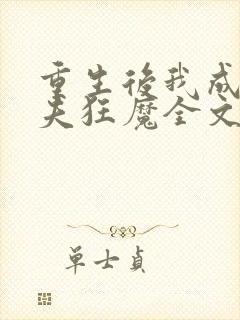 重生後我成
夫狂魔全文
單士貞